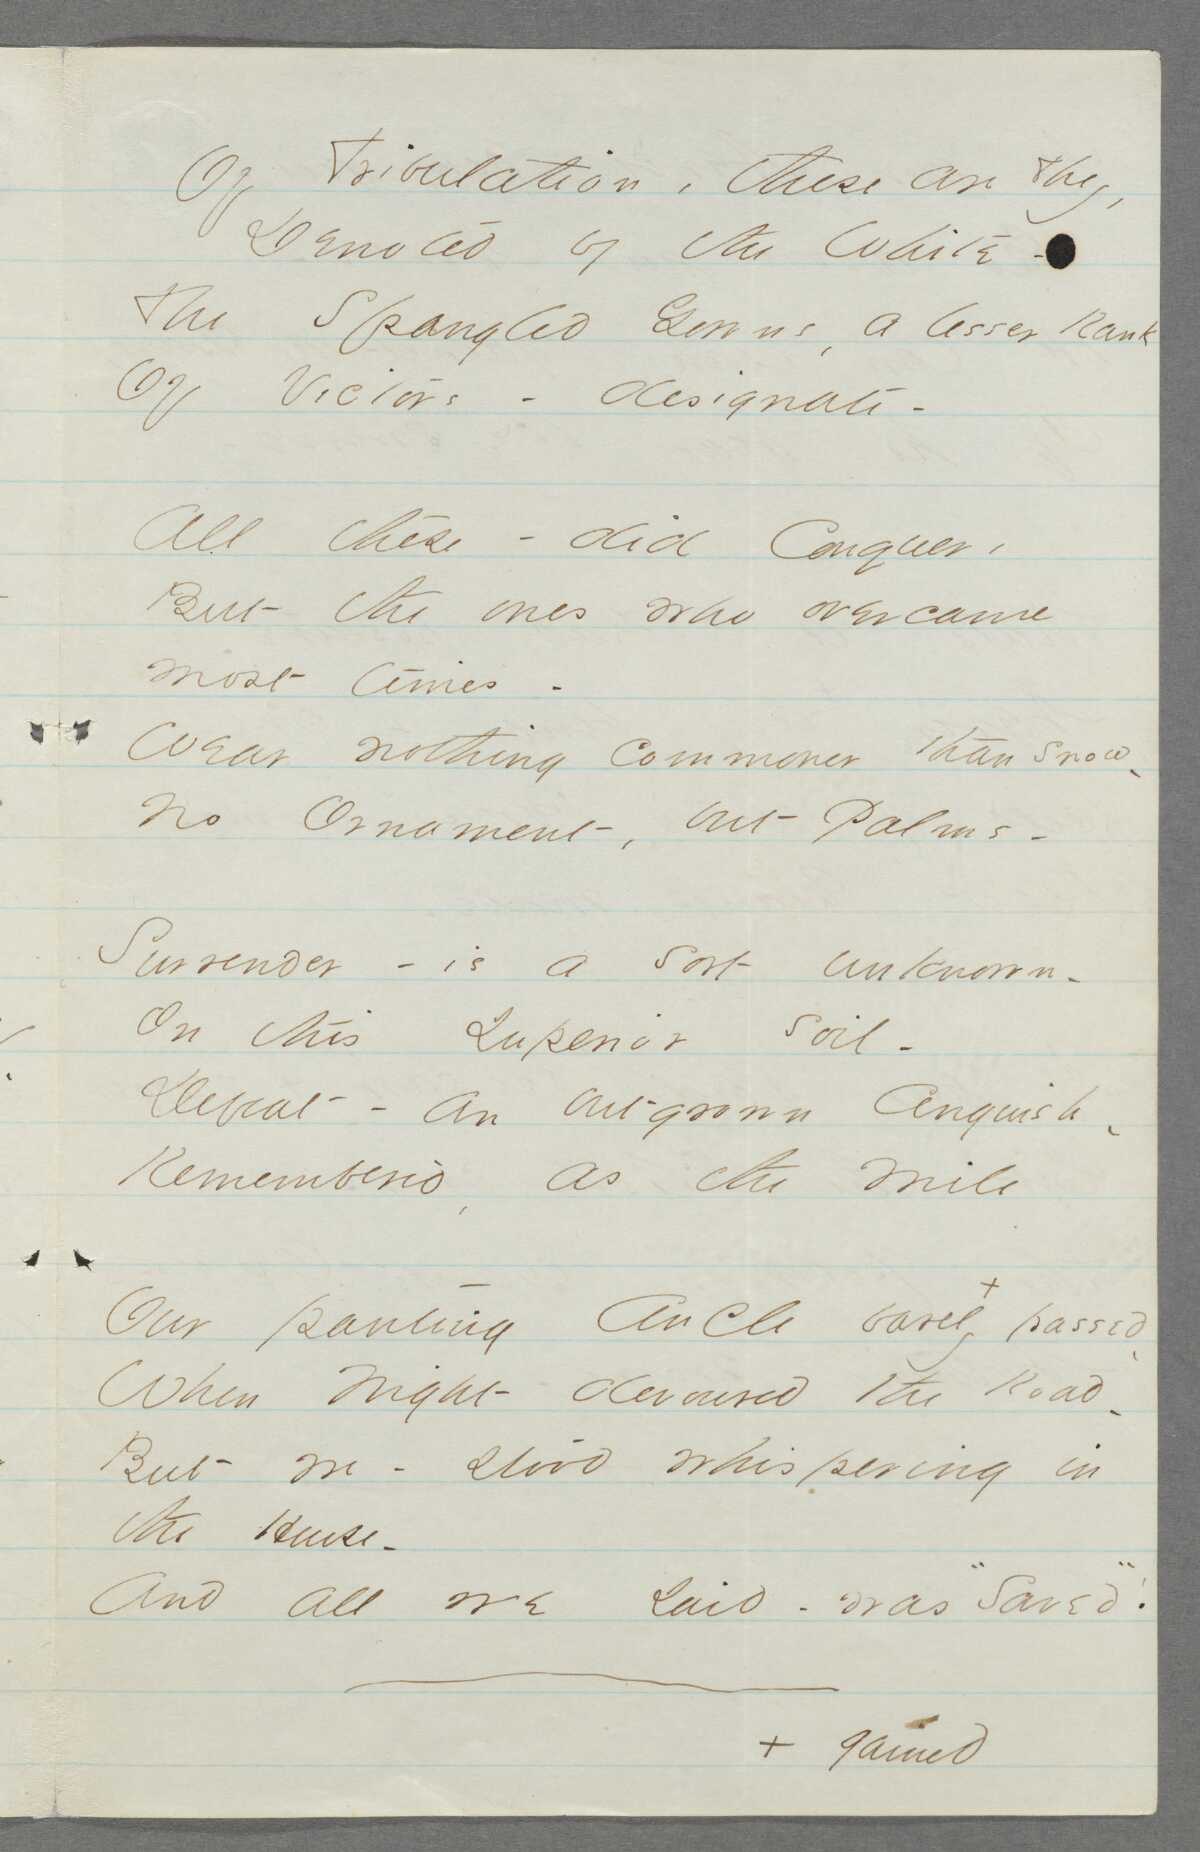 Of Tribulation, these are They,
Denoted by the White -
The Spangled Gowns, a lesser Rank
Of Victors - designate -
All these - did Conquer,
But the ones who overcame
most times -
Wear nothing commoner than Snow -
No Ornament, but Palms -
Surrender - is a sort unknown -
On this Superior soil -
Defeat - an outgrown Anguish -
Remembered, as the Mile
Our panting Ancle barely + passed -
When Night devoured the Road -
But we - stood whispering in
the House -
And all we said - was "Saved"!
+ gained